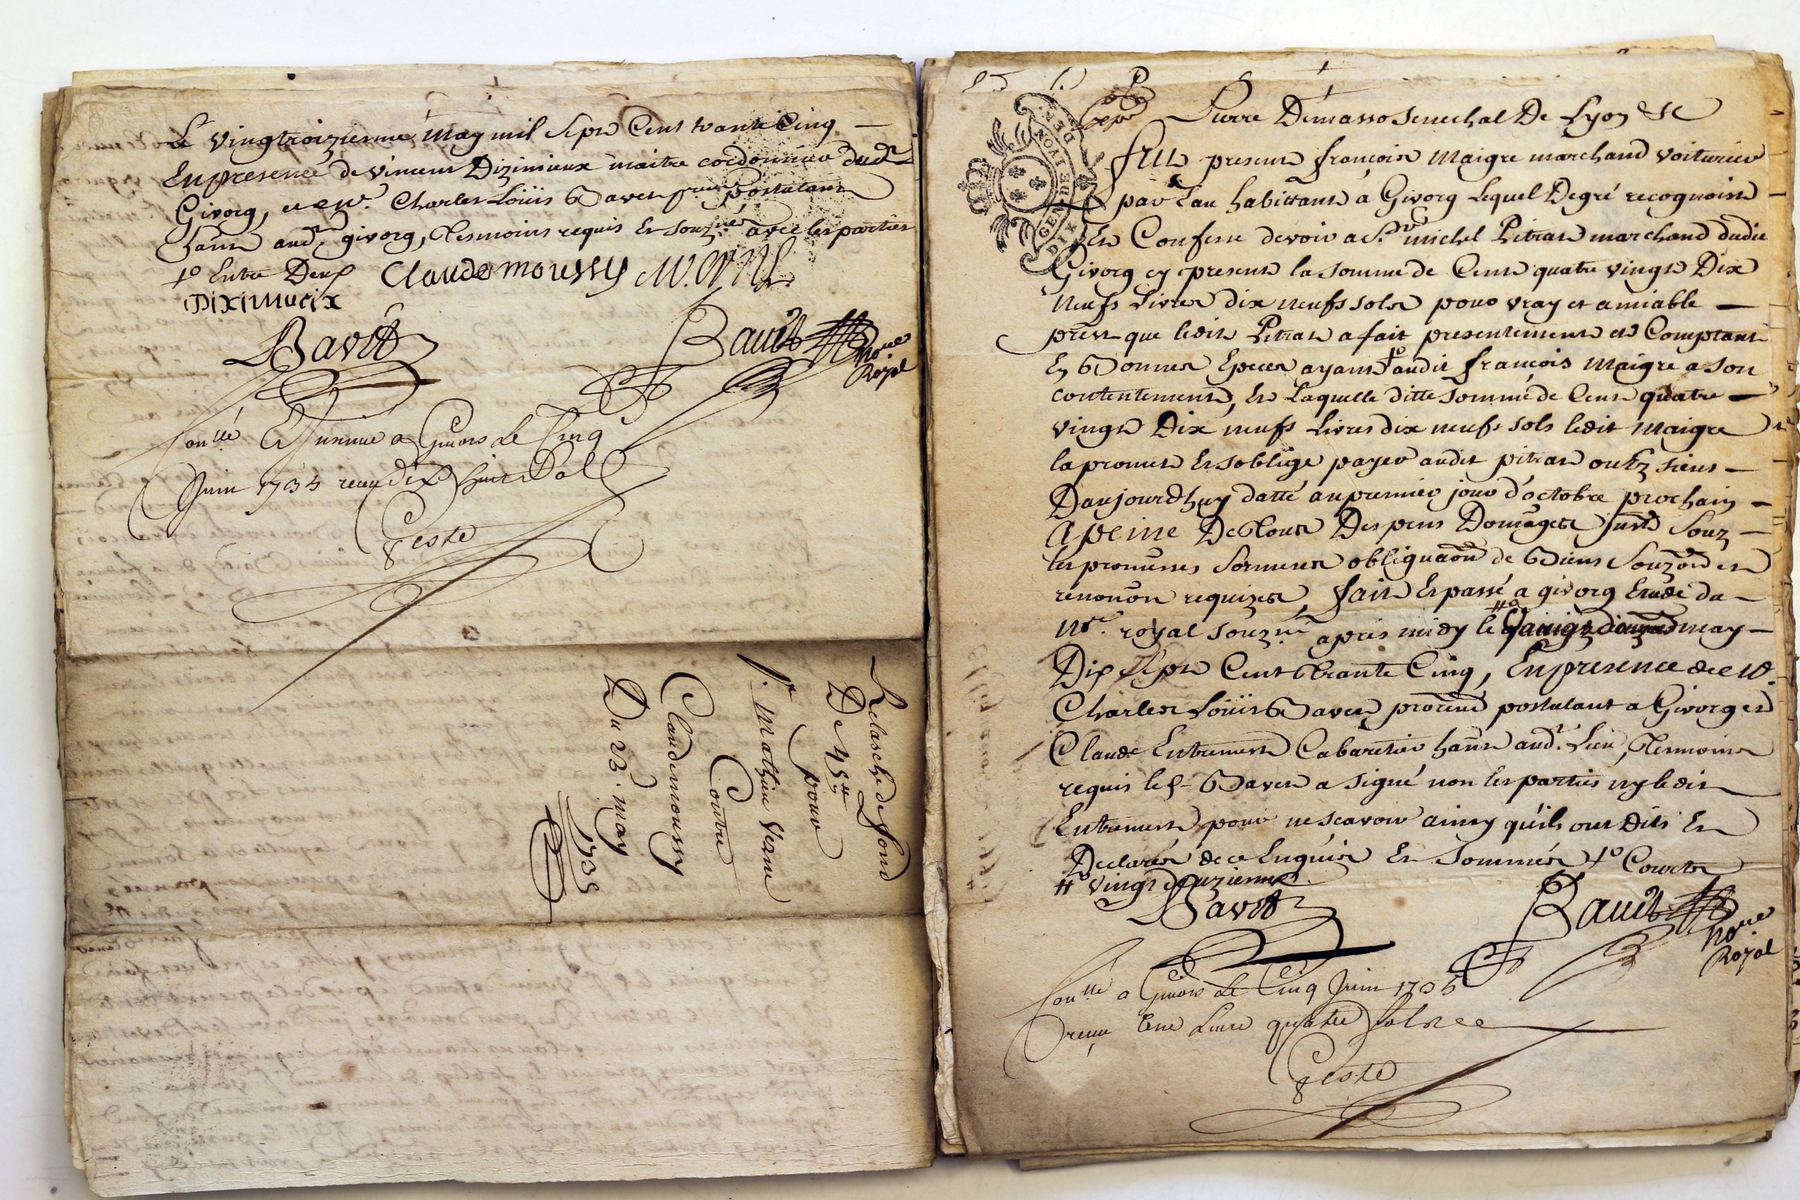 Le vingtroizienne may mil sept Cent trante Cinq
En presence de vincent Dizimieux maitre cordonnier dud.
Givorg, et Charles Loüis Bavet postulant
audt givorg, tesmoins requis et souz.nés avec les parties
+o Entre Deux Claude moussy
DIXIMUEIX
Bavet
Bault noere Royal
Conllé Et a Givors Le Cinq
Juin 1735 receu dix huit sols
Geste
Relasche de fond
De 45ᵗᵗ
pour
Sr. Mathieu
Contre
Claude moussy
Du 23 may
1735
Pierre Demasso Senechal De Lyon &c
GEN DE LYON
DIX DEN
fut present françois Maigre marchand voiturier
par eau habittant à Givorg Lequel De gré recognoist
Et Confesse devoir a Sr. michel Pitrat marchand dudit
Givorg cy present la somme de Cent quatre vingt Dix
neufs Livres dix neufs sols pour vray et amiable
prest que ledit Pitrat a fait presentement et Comptant
En Bonnes Especes ayant +o audit françois Maigre a son
contentement, Et Laquelle ditte somme de Cent quatre
vingt Dix neufs Livres dix neufs sols ledit Maigre
la promet Et soblige payer audit pitrat ou Ez siens
Daujourdhuy datte au premier jour d'octobre prochain
A peine De Tous Despens Domages souz
les promesses serment obligãon de Biens
renonõn requizes, fait Et passé a givorg Etude du
nore. royal souzné après midy le #o may
Dix sept Cent Trante Cinq, En presence de
Charles Loüis Bavet postulant a Givorg et
Claude Entrement Cabaretier audt. Lieu, Tesmoins
requis led. Bavet a signé non les parties ny ledit
Entrement pour ne scavoir ainsy qu'ils ont Dits Et
Declarés de ce Enquis Et sommés +o Cours
#o vingt douzienne
Bavet
Bault noere Royal
Conllé a Givors Le Cinq Juin 1735
receu Une Livre quatre sols
Geste